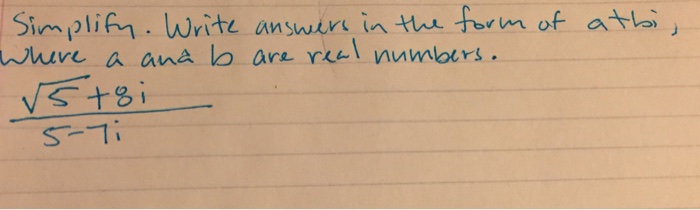 Simplify. Write answers in the form of a+bi,
where a and b are real numbers.
√5+8i
5-7i